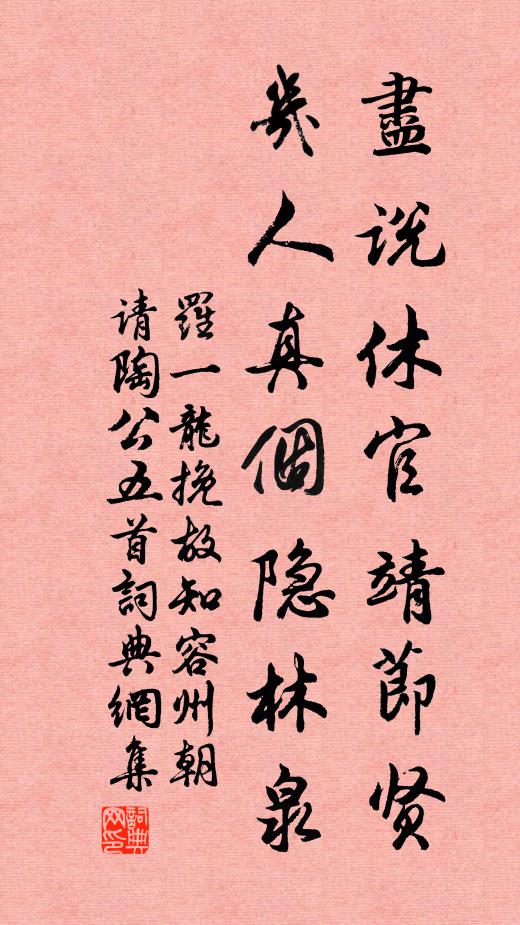 盡说休官靖節贤
幾人真個隐林泉
羅一龍挽故知容州朝
请陶公五首詞典網集
詞典
网印